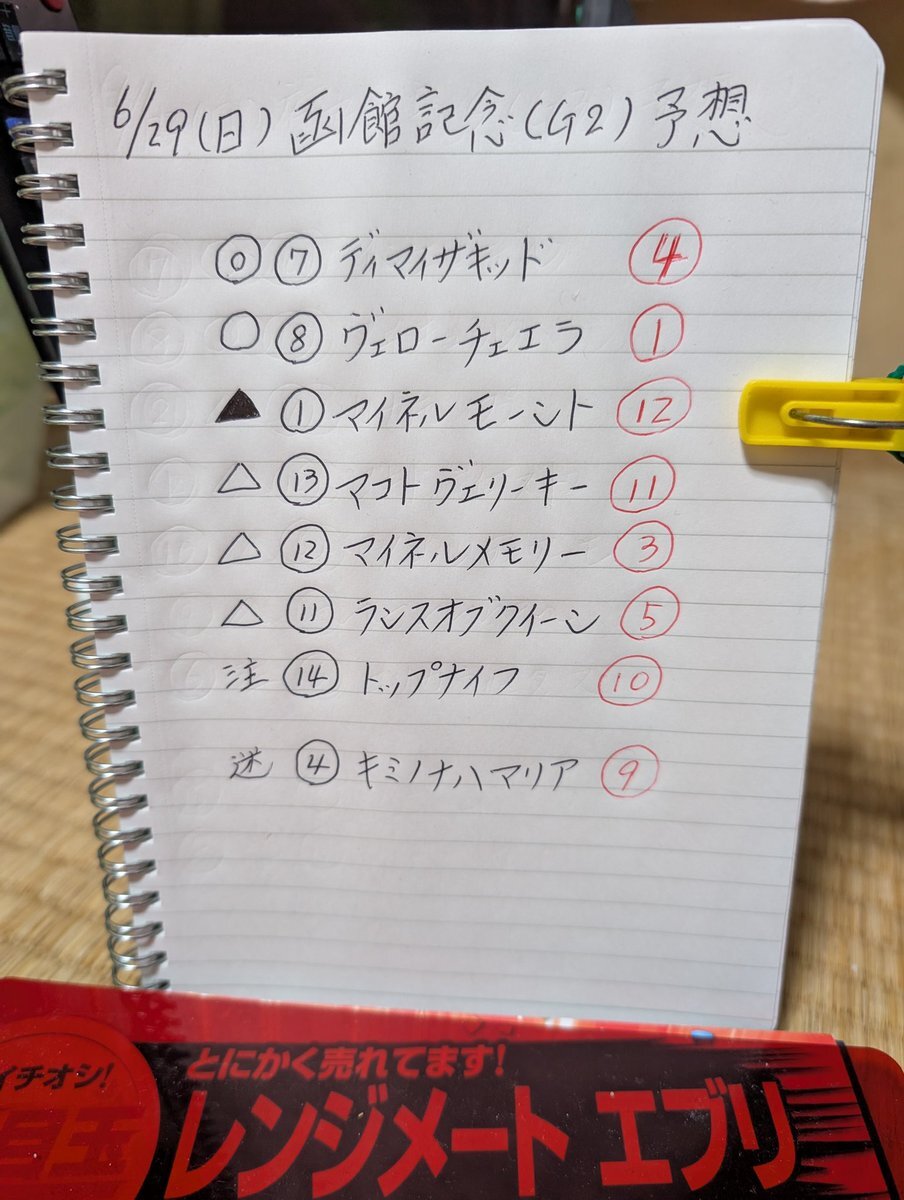 6/29(日)函館記念(G2)予想
◎ ⑦ ディマイザキッド ④
○ ⑧ ヴェローチェエラ ①
▲ ① マイネルモーント ⑫
△ ⑬ マコトヴェリーキー ⑪
△ ⑫ マイネルメモリー ③
△ ⑪ ランスオブクイーン ⑤
注 ⑭ トップナイフ ⑩
迷 ④ キミノナハマリア ⑨
イチオシ!
とにかく売れてます!
レンジメート エブリ